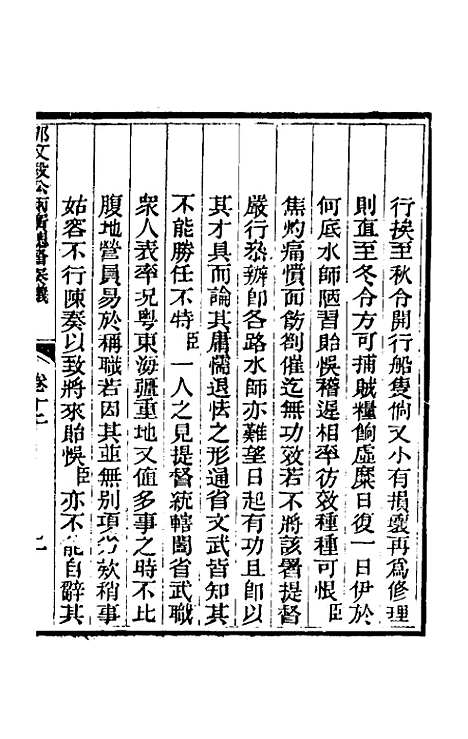 行挨至秋令開行船隻倘又小有損壞再爲修理
則直至冬令方可捕賊糧餉虛糜日復一日伊於
何底水師陋習貽悞稽遲相率彷效種種可恨臣
焦灼痛憤面飭劄催迄無功效若不將該署提督
嚴行恭辦卽各路水師亦難望日起有功且卽以
其才具而論其庸懦退怯之形通省文武皆知其
不能勝任不特臣一人之見提督統轄闔省武職
衆人表率况粵東海疆重地又值多事之時不比
腹地營員易於稱職若因其並無别項劣欵稍事
姑容不行陳奏以致將來貽悞臣亦不能自辭其
那文毅公兩廣總督奏議
卷十